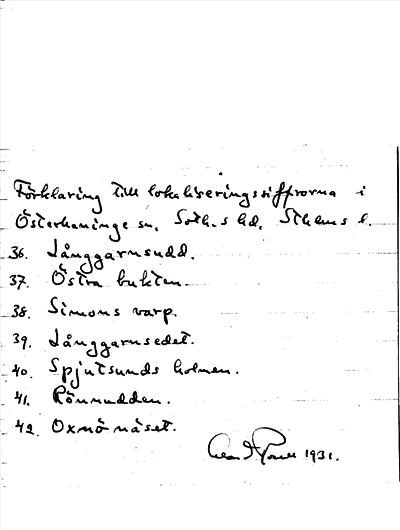 Förklaring till lokaliseringssiffrorna i
Österhaninge sn, Soth.s hd, Sthlms l.
36. Långgarnsudd.
37. Östra bukten.
38. Simons varp.
39. Långgarnsedet.
40. Spjutsunds holmen.
41. Rönnudden.
42. Oxnö näset.
1931.